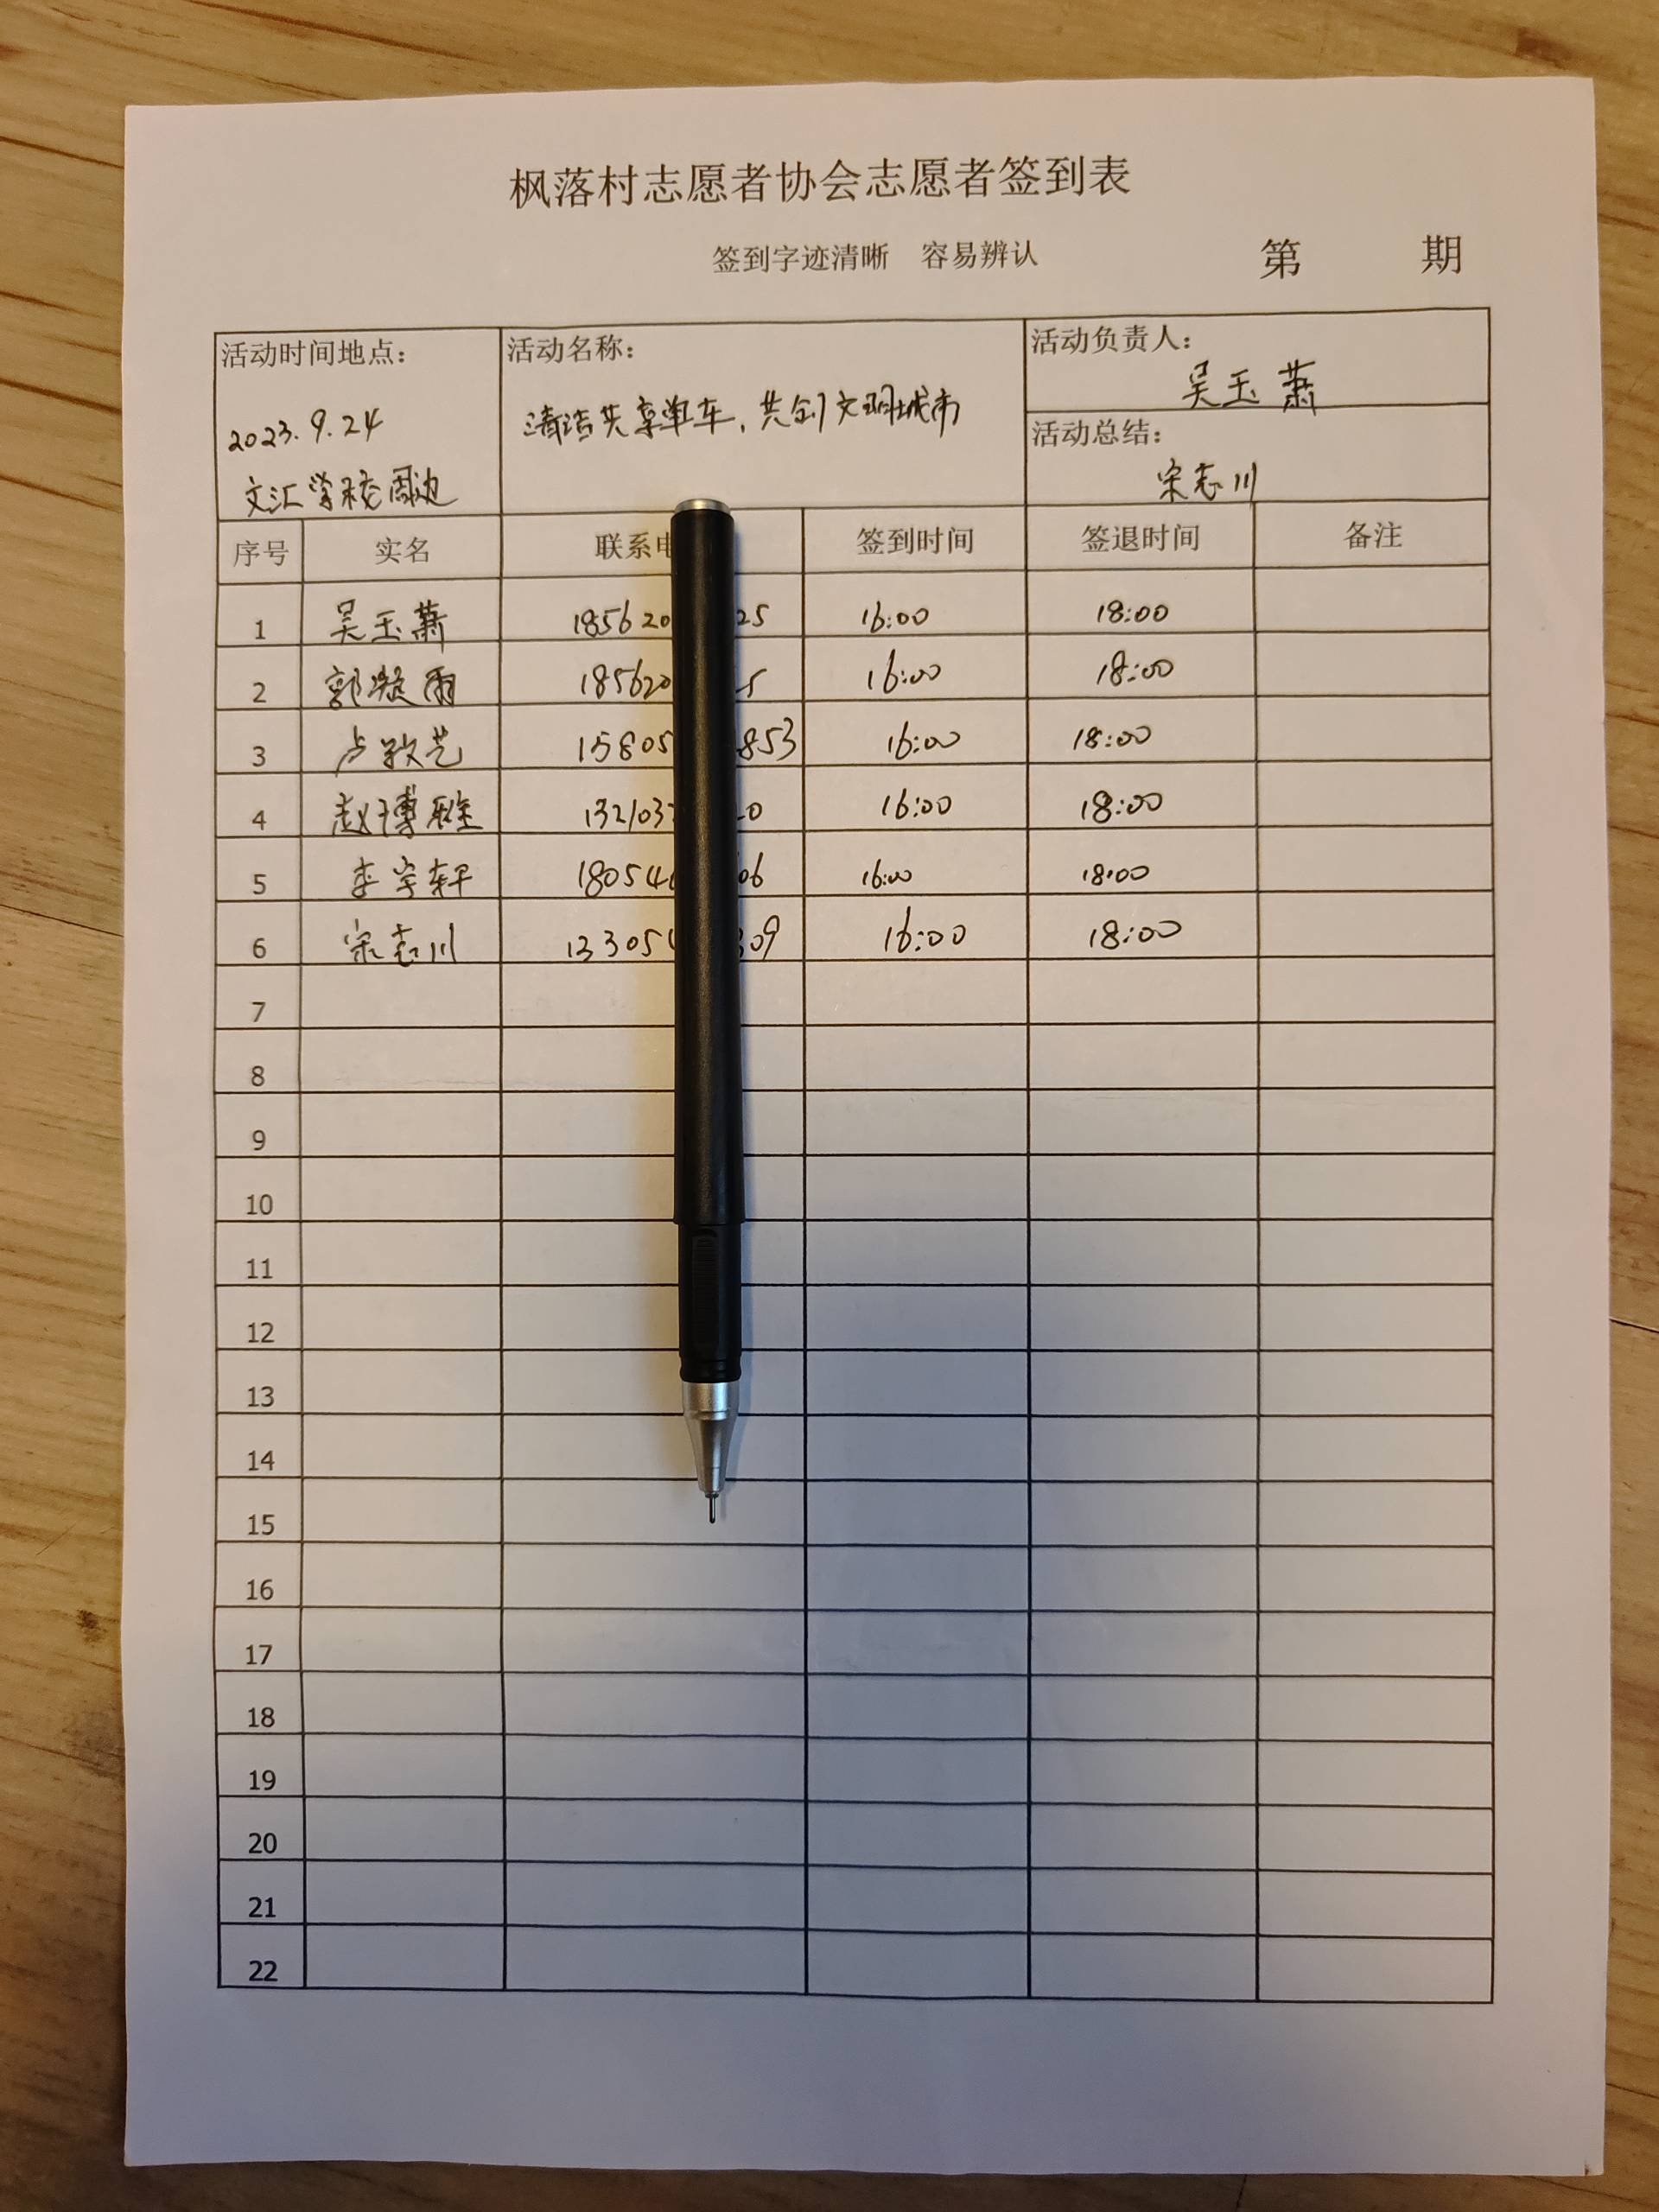 枫落村志愿者协会志愿者签到表
签到字迹清晰 容易辨认 第 期
活动时间地点: 活动名称: 活动负责人:
吴玉萧
2023.9.24 清洁共享单车,共创文明城市 活动总结:
文汇学校周边 宋志川
序号 实名 联系电 签到时间 签退时间 备注
1 吴玉萧 185620 25 16:00 18:00
2 郭凝雨 185620 5 16:00 18:00
3 卢敬艺 15805 853 16:00 18:00
4 赵博雅 132103 0 16:00 18:00
5 李宇轩 18054 06 16:00 18:00
6 宋志川 133054 309 16:00 18:00
7
8
9
10
11
12
13
14
15
16
17
18
19
20
21
22